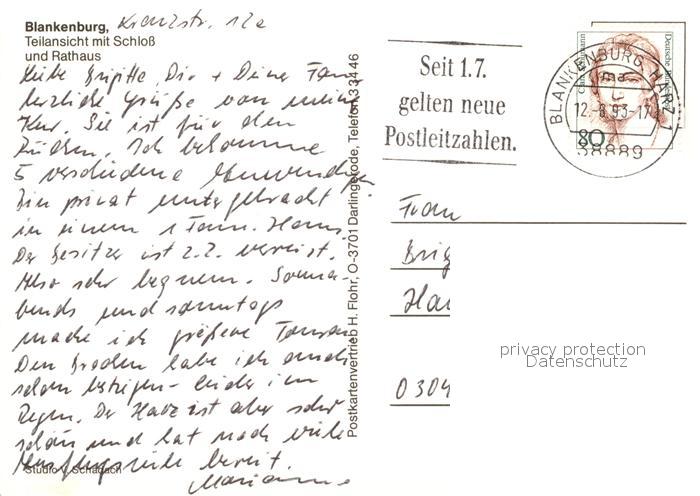 Blankenburg, Kreuzstr. 12a
Teilansicht mit Schloß
und Rathaus
Liebe Brigitte, Dir + Deiner Fam
herzliche Grüße von meiner
Kur. Sie ist für den
Rücken. Ich bekomme
5 verschiedene Anwendungen
Bin privat untergebracht
in einem 1 Fam. Haus.
Der Besitzer ist z.Z. verreist.
Also sehr bequem. Sonna-
bends und sonntags
mache ich größere Touren
Den Brocken habe ich auch
schon bestiegen - leider im
Regen. Der Harz ist aber sehr
schön und hat noch viele
Ausflugsziele bereit.
Marianne
Studio V. Schadach
Postkartenvertrieb H. Flohr, O-3701 Darlingerode, Telefon 33446
Seit 1.7.
gelten neue
Postleitzahlen.
BLANKENBURG, HARZ 1
12.-8.93-17
38889
Deutsche
80
Frau
Brig
Ha
O304
privacy protection
Datenschutz